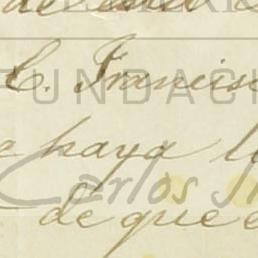 de
C. Francis
FUNDACI
e haya l
Carlos
de que e